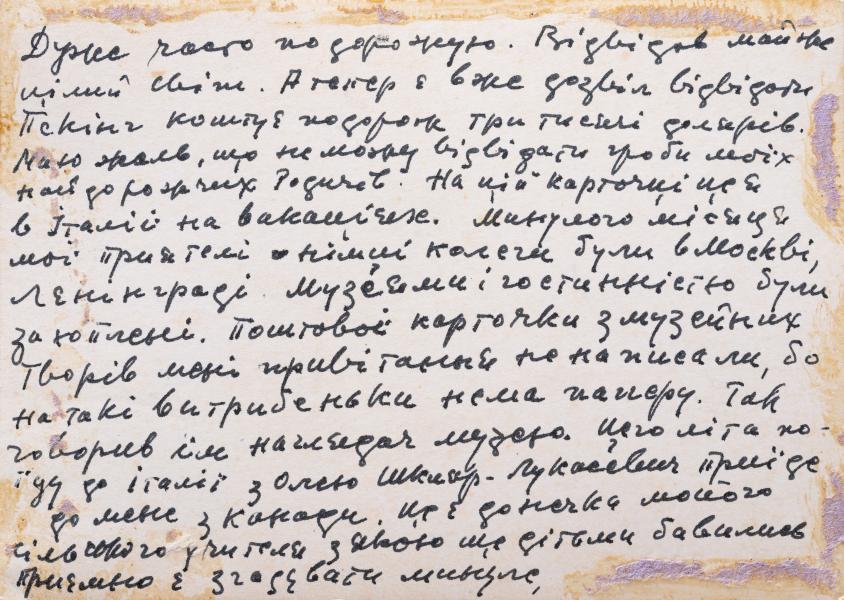 Дуже часто подорожую. Відвідав майже
цілий світ. А тепер є вже дозвіл відвідати
Пекінг коштує подорож три тисячі долярів.
Маю жаль, що не можу відвідати гроби моїх
найдорожчих Родичів. На цій карточці це я
в Італії на вакаціях. Минулого місяця
мої приятелі німці колеги були в Москві,
Ленінграді. Музеями і гостинністю були
захоплені. Поштової карточки з музейних
творів мені привітання не написали, бо
на такі витребеньки нема паперу. Так
говорив їм наглядач музею. Цего літа по-
їду до Італії з Олею Шкляр-Лукасевич приїде
до мене з Канади. Це є донечка мойого
сільского учителя з якою ще дітьми бавились
Приємно є згадувати минуле,